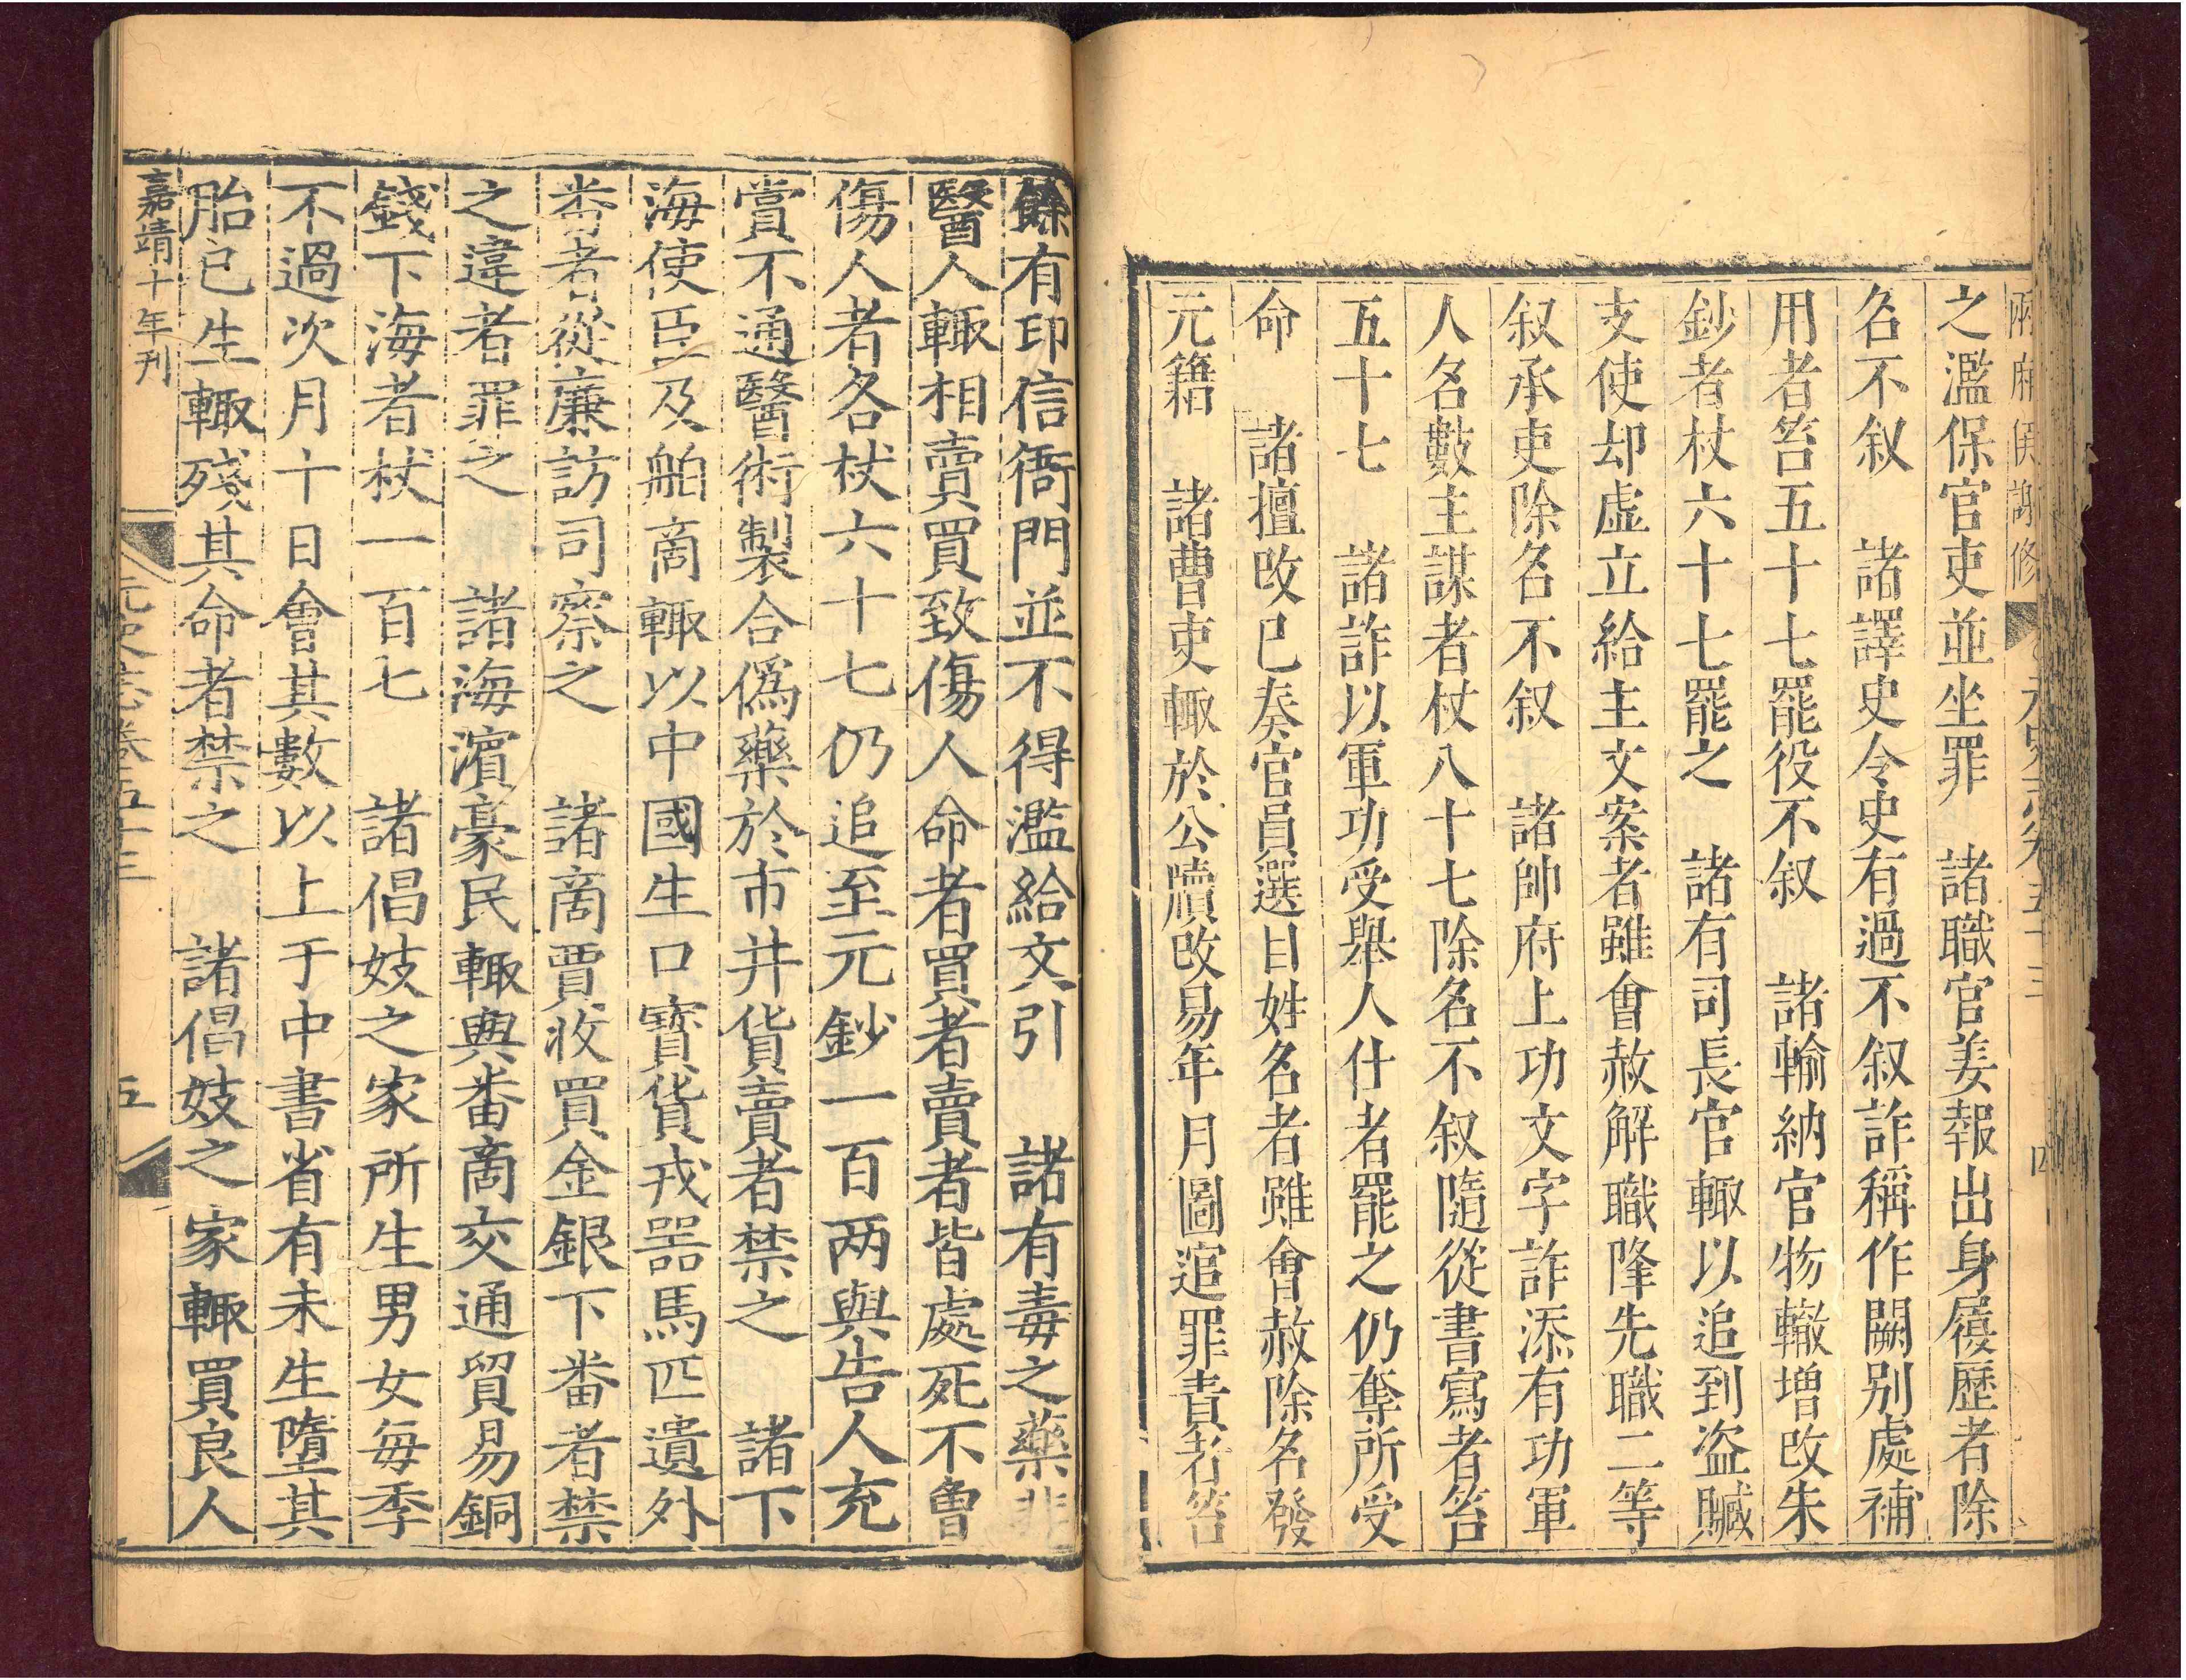 之濫保官吏並坐罪　諸職官妄報出身履歷者除
名不叙　諸譯史令史有過不叙詐稱作闕别處補
用者笞五十七罷役不叙　諸輸納官物轍增改朱
鈔者杖六十七罷之　諸有司長官輙以追到盗贓
支使却虚立給主文案者雖會赦解職降先職二等
叙承吏除名不叙　諸帥府上功文字詐添有功軍
人名數主謀者杖八十七除名不叙隨從書寫者笞
五十七　諸詐以軍功受舉人仕者罷之仍奪所受
命　諸擅改已奏官員選目姓名者雖會赦除名發
元籍　諸曹吏輙於公牘改易年月圖逭罪責者笞
餘有印信衙門並不得濫給文引　諸有毒之藥非
醫人輙相賣買致傷人命者買者賣者皆處死不曾
傷人者各杖六十七仍追至元鈔一百两與告人充
賞不通醫術製合僞藥於市井貨賣者禁之　諸下
海使臣及舶啇輙以中國生口寳貨戎噐馬匹遺外
畨者從廉訪司察之　諸啇賈收買金銀下畨者禁
之違者罪之　諸海濵豪民輙與畨啇交通貿易銅
錢下海者杖一百七　諸倡妓之家所生男女每季
不過次月十日會其數以上于中書省有未生墮其
胎已生輙殘其命者禁之　諸倡妓之家輙買良人
嘉靖十年刊
元史志卷五十三
五